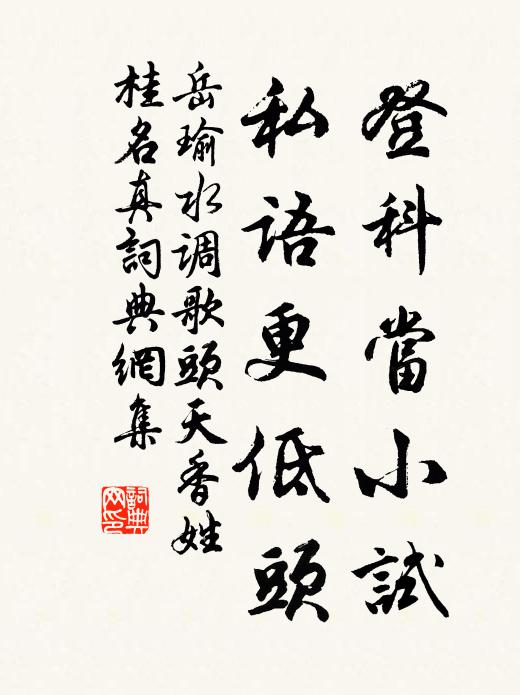 登科當小試
私語更低頭
岳瑜水调歌頭天香姓
桂名真詞典網集
詞典
网印